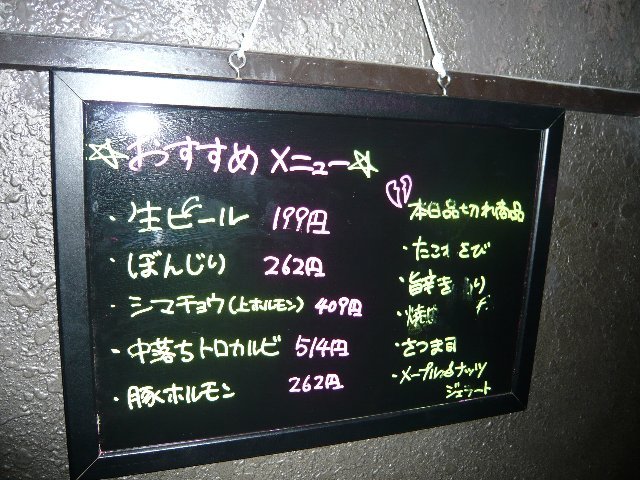 ☆おすすめメニュー☆
・生ビール 199円
・ぼんじり 262円
・シマチョウ(上ホルモン) 409円
・中落ちトロカルビ 514円
・豚ホルモン 262円
本日品切れ商品
・たこわさび
・旨辛き り
・焼
・さつま司
・メープル ナッツ
ジェラート